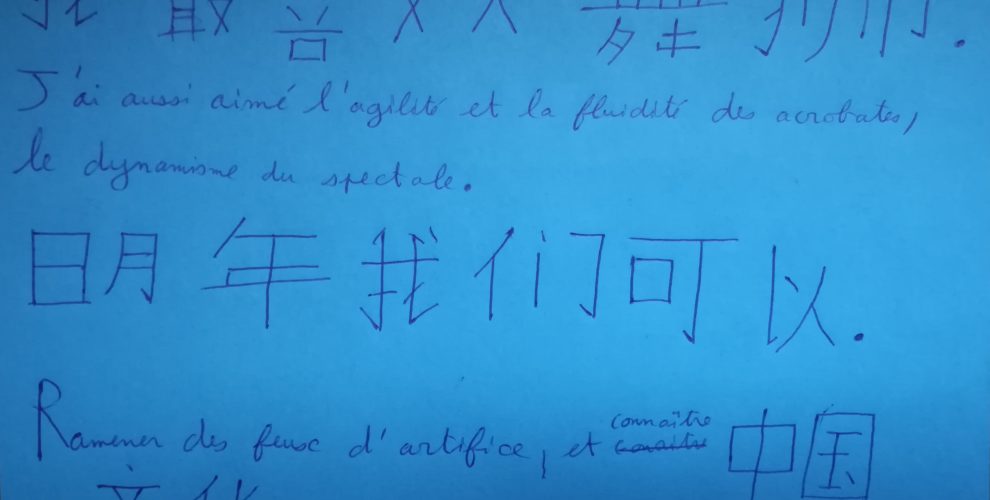 我最喜欢舞狮.
J'ai aussi aimé l'agilité et la fluidité des acrobates,
le dynamisme du spectale.
明年我们可以.
Ramener des feux d'artifice, et connaître 中国
文化